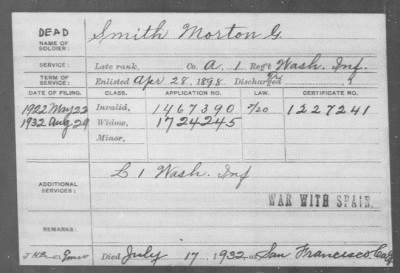 DEAD
NAME OF SOLDIER: Smith Morton G.
SERVICE: Late rank, Co. A, 1 Reg't Wash. Inf.
TERM OF SERVICE: Enlisted Apr 28, 1898. Discharged
DATE OF FILING. CLASS. APPLICATION NO. LAW. CERTIFICATE NO.
1922 May 22 Invalid, 1467390 1227241
1932 Aug 29 Widow, 1724245
Minor,
ADDITIONAL SERVICES: L 1 Wash. Inf
WAR WITH SPAIN.
REMARKS:
Died July 17, 1932, at San Francisco Calif